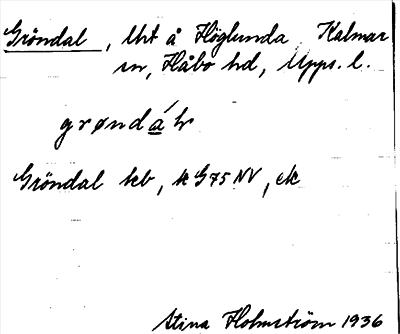 Gröndal, lht å Höglunda Kalmar
sn, Håbo hd, Upps. l.
grøndá̱lr
Gröndal kb, k G75 NV, ek
Stina Holmström 1936